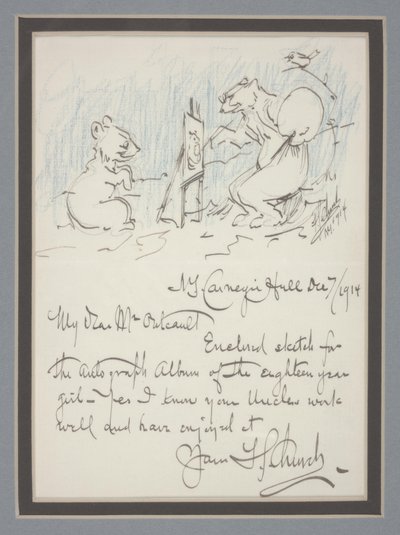 F S Church
N.Y. 1914
N.Y. Carnegie Hall Dec 7/1914
My Dear Mr Outcault
Enclosed sketch for
the Autograph Album of the eighteen year
girl - Yes I know your Uncles work
well and have enjoyed it
Yours F S Church